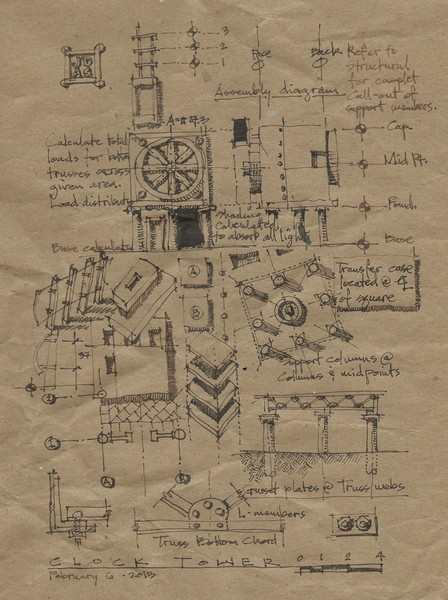 3
2
1
Face
Back
Refer to
structural
for complet
Call-out of
support members.
Assembly diagram
Calculate total
loads for both
trusses across
given area.
Load distributi
Cap
Mid Pt.
Found.
Base
shading
calculated
to absorb all light
Base calculate
A
B
Transfer case
located @ 4
of square
37
support columns @
Columns & midpoints
2
C
A
B
gusset plates @ Truss webs
L members
Truss Bottom Chord
CLOCK TOWER
0 1 2 4
February 6 · 2013